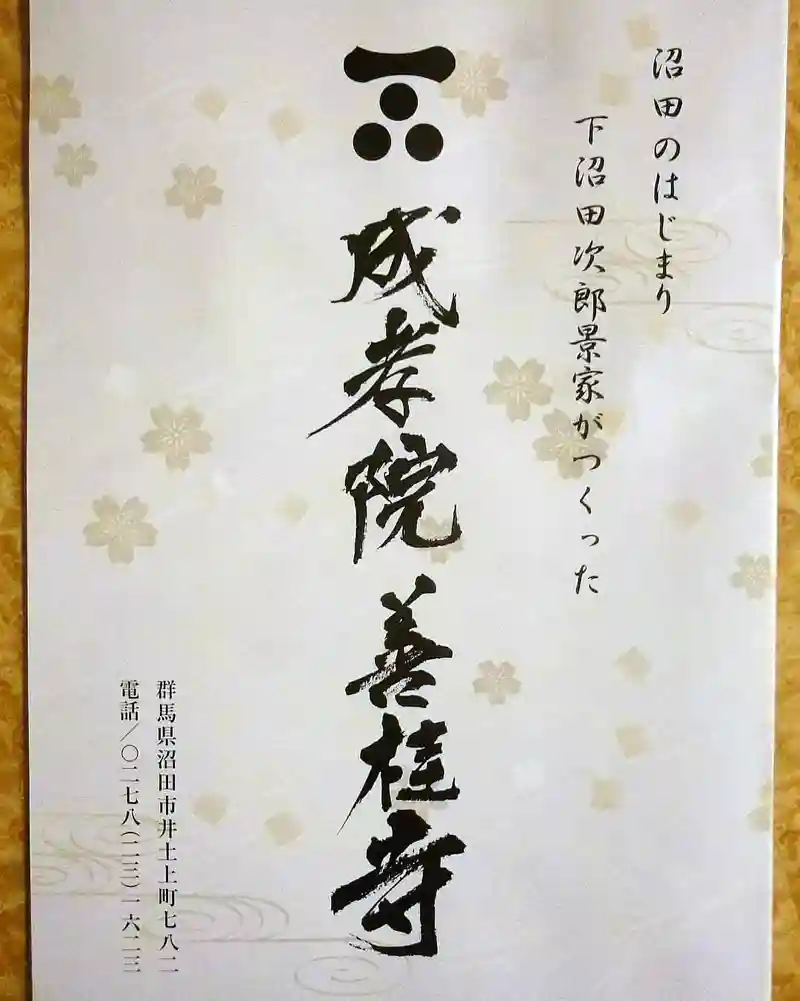 沼田のはじまり
下沼田次郎景家がつくった
成孝院 善桂寺
群馬県沼田市井土上町七八二
電話／〇二七八（二三）一六二三